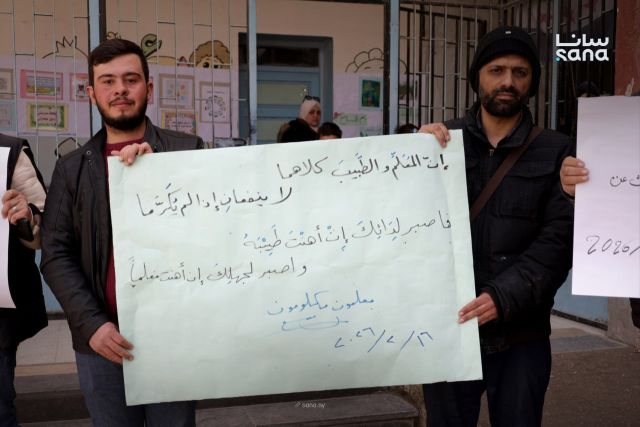 سانا
sana
إنّ المعلّم والطّبيبَ كلاهما
لا ينفعانِ إذا لم يُكرَّما
فاصبر لدائِكَ إنْ أهنْتَ طَبِيْبَهُ
واصبر لجهلِكَ إن أهنت معلّماً
معلمون مكلومون
ث عن
2020/
sana.sy